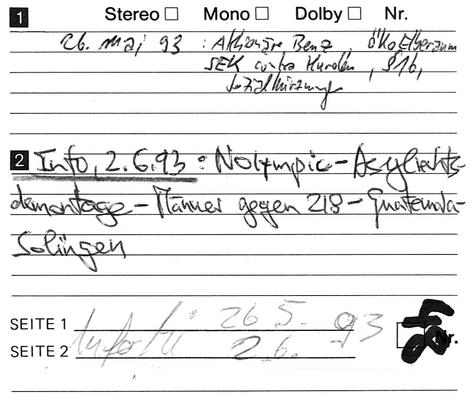 1 Stereo ☐ Mono ☐ Dolby ☐ Nr.
26. Mai 93 : Aktionäre Benz,
SEK contra Kurden, §16,
Sozialkürzungen
2 Info, 2.6.93 : Nolympic - Asylrechts-
demontage - Männer gegen 218 - Guatemala -
Solingen
SEITE 1 26 5. 93
SEITE 2 2 6. Nr.